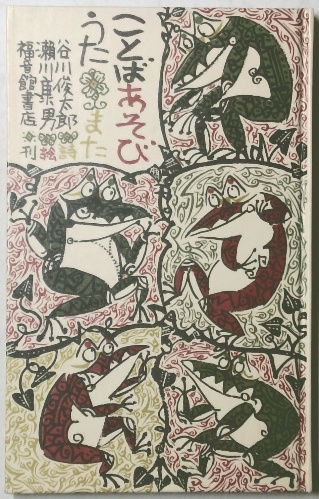 ことばあそび
うた❀また
谷川俊太郎❀詩
瀬川康男❀絵
福音館書店❀刊